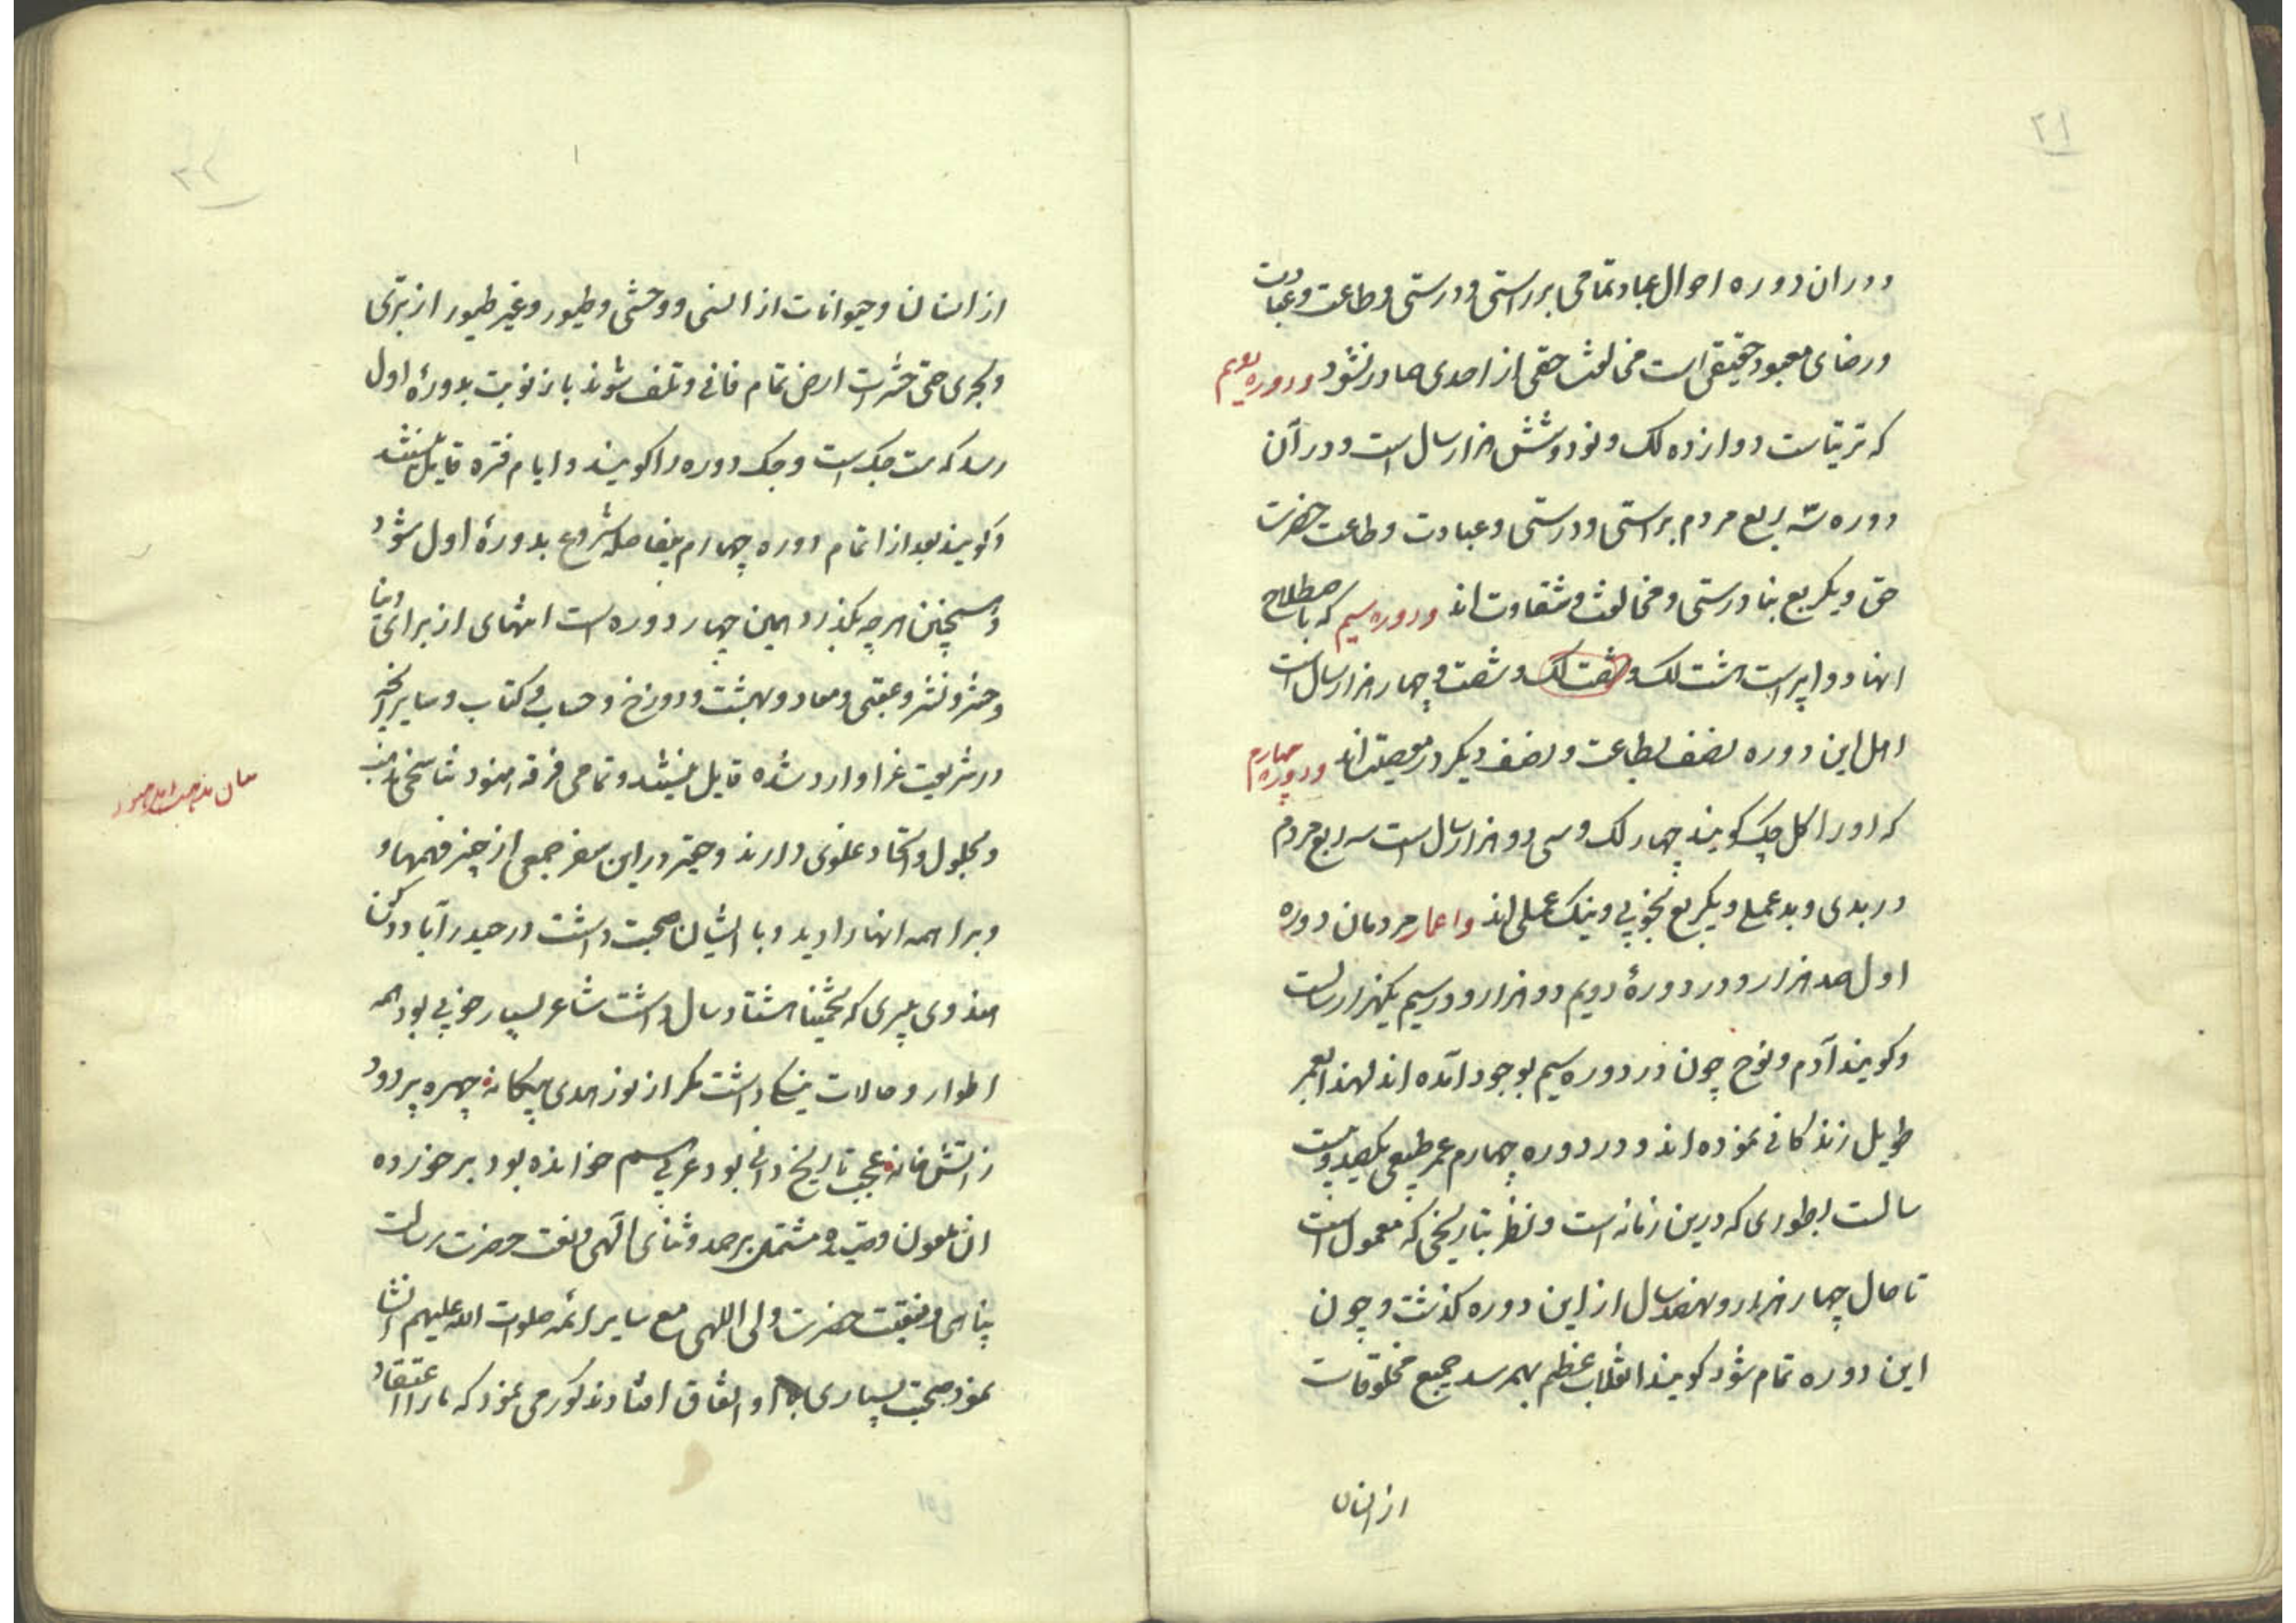 ۲۱
ودران دوره احوال عباد تمامی بر راستی و درستی و طاعت و عبادت
و رضای معبود حقیقی است مخالفت حقی از احدی صادر نشود و دوره دویم
که ترتیاست دوازده لک و نود و شش هزار سال است و در آن
دوره سه ربع مردم براستی و درستی و عبادت و طاعت حضرت
حق و یکربع بنادرستی و مخالفت و شقاوت اند و دوره سیم که باصطلاح
انها دواپر است هشت لک و شصت لک و شصت و چهار هزار سال است
اهل این دوره نصف بطاعت و نصف دیگر در معصیت اند و دوره چهارم
که اورا کل جک کویند چهار لک و سی و دو هزار سال است سه ربع مردم
در بدی و بد عملی و یکربع بخوبی و نیک عملی اند و اعمار مردمان دوره
اول صد هزار و در دورهٔ دویم دو هزار و در سیم یکهزار سالست
و کویند آدم و نوح چون در دوره سیم بوجود آمده اند لهذا بعمر
طویل زندکانی نموده اند و در دوره چهارم عمر طبیعی یکصد و بیست
سالست بطوری که درین زمانه است و نظر بتاریخی که معمول است
تا حال چهار هزار و نهصد سال از این دوره کذشت و چون
این دوره تمام شود کویند انقلاب عظیم بهم رسد جمیع مخلوقات
از انسان
۲۲
از انسان و حیوانات از انسی و وحشی و طیور و غیر طیور از بری
و بحری حتی حشرات ارض تمام فانی و تلف شوند باز نوبت بدورهٔ اول
رسد که ست جک است و جک دوره را کویند و ایام فتره قایل نیستند
و کویند بعد از اتمام دوره چهارم بیفاصله شروع بدورهٔ اول شود
و همچنین هرچه بکذرد همین چهار دوره است انتهای از برای دنیا
و حشر و نشر و عقبی و معاد و بهشت و دوزخ و حساب و کتاب و سایر آنچه
در شریعت غرا وارد شده قایل نیستند و تمامی فرقه هنود تناسخی مذهب
بیان مذهب اهل هنود
و بحلول و اتحاد غلوی دارند و حقیر در این سفر جمعی از چیز فهمها و
و براهمه انها را دید و با ایشان صحبت داشت در حیدرآباد دکن
هندوی پیری که تخمینا هشتاد سال داشت شاعر بسیار خوبی بود همه
اطوار و حالات نیک داشت مکر از نور هدی بیکانه چهره پر دود
ز آتش خانه عجب تاریخ دانی بود عربی هم خوانده بود بر خورده
ان ملعون قصیده مشتمل بر حمد و ثنای آلهی و نعت حضرت رسالت
پناهی و منقبت حضرت ولی اللهی مع سایر ائمه صلوات الله علیهم انشا
نمود صحبت بسیاری با او اتفاق افتاد مذکور می نمود که ما را اعتقاد